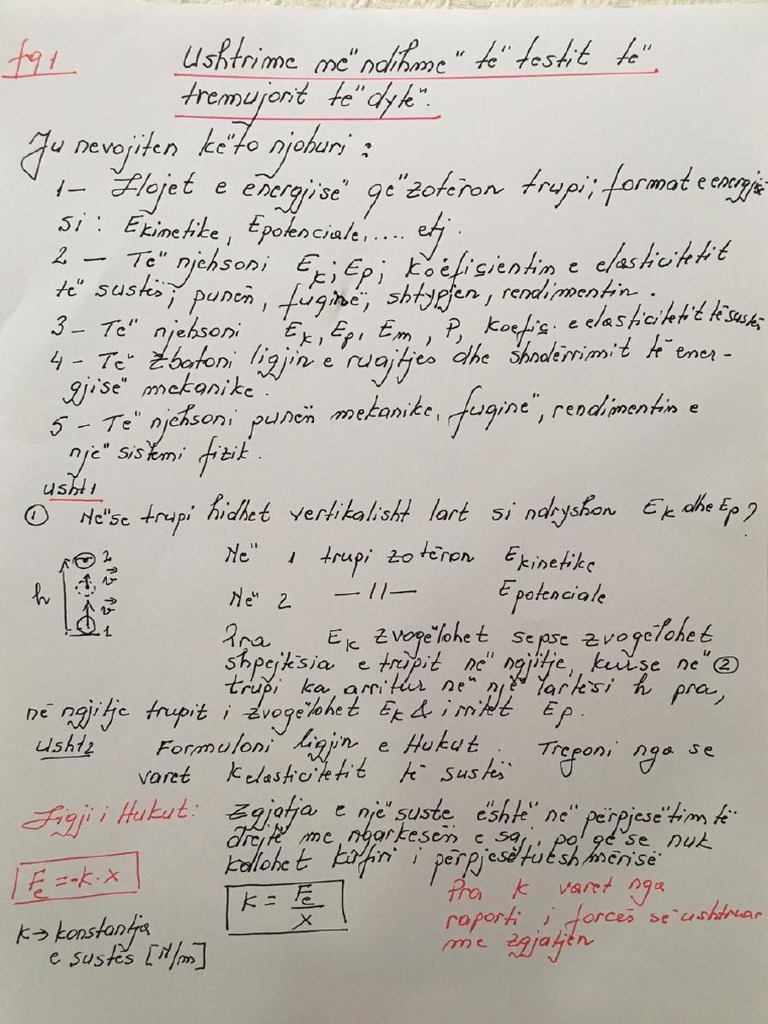 fq1
Ushtrime në ndihmë të testit të
tremujorit të dytë.
Ju nevojiten këto njohuri :
1- Llojet e energjisë që zotëron trupi; format e energjisë
si : Ekinetike, Epotenciale, .... etj.
2 - Të njehsoni Ek; Ep; koefiçientin e elasticitetit
të sustës; punën, fuqinë, shtypjen, rendimentin.
3 - Të njehsoni Ek, Ep, Em, P, koefiç. e elasticitetit të sustës
4 - Të zbatoni ligjin e ruajtjes dhe shndërrimit të ener-
gjisë mekanike.
5 - Të njehsoni punën mekanike, fuqinë, rendimentin e
një sistemi fizik.
usht1
① Nëse trupi hidhet vertikalisht lart si ndryshon Ek dhe Ep?
h 2 v v 1
Në 1 trupi zotëron Ekinetike
Në 2 —11— Epotenciale
Pra Ek zvogëlohet sepse zvogëlohet
shpejtësia e trupit në ngjitje, kurse në ②
trupi ka arritur në një lartësi h pra,
në ngjitje trupit i zvogëlohet Ek & i rritet Ep.
Usht2 Formuloni ligjin e Hukut. Tregoni nga se
varet kelasticitetit të sustës
Ligji i Hukut: Zgjatja e një suste është në përpjesëtim të
drejtë me ngarkesën e saj, po qe se nuk
kalohet kufiri i përpjesëtueshmërisë
Fe = -k·x
k = Fe/x
k → konstantja
e sustës [N/m]
Pra k varet nga
raporti i forcës së ushtruar
me zgjatjen